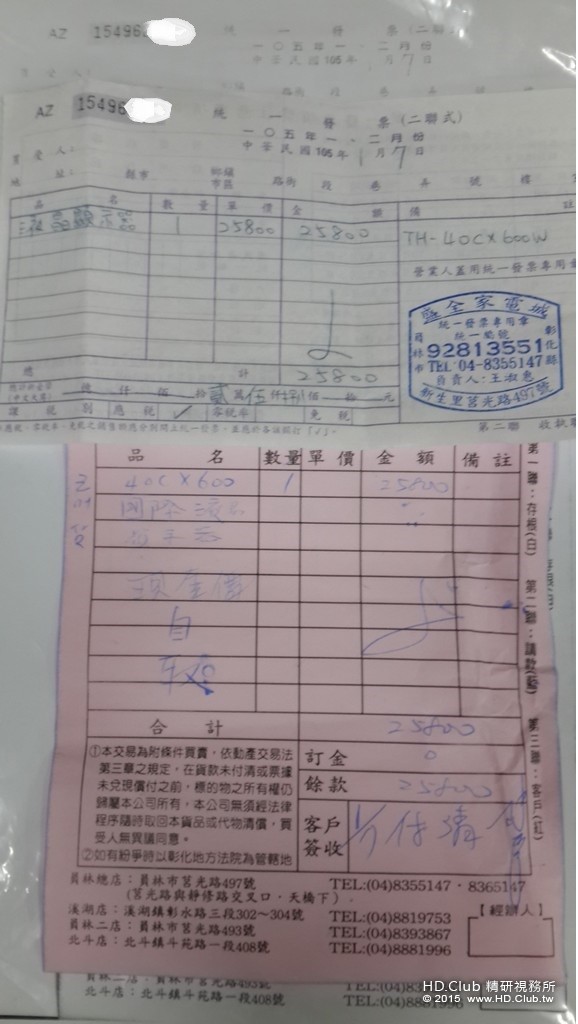 AZ 15496 統一發票(二聯
一○五年一、二月份
中華民國105年1月7日
AZ 15496 統一發票(二聯式)
一○五年一、二月份
中華民國105年1月7日
買受人:
地址: 縣市 鄉鎮市區 路街 段 巷 弄 號 樓
品名 數量 單價 金額 備註
液晶顯示器 1 25800 25800 TH-40CX600W
營業人蓋用統一發票專用章
盛全家電城
統一發票專用章
統一編號
員林市 92813551 彰化縣
TEL:04-8355147
負責人:王淑惠
新生里莒光路497號
總計 25800
總計新台幣(中文大寫) 億 仟 佰 拾 貳萬 伍仟 捌佰 拾 元
課稅別 應稅 ✓ 零稅率 免稅
第二聯 收執聯
品名 數量 單價 金額 備註
40CX600 1 25800
國際液晶
顯示器
現金價
自
載
合計 25800
①本交易為附條件買賣,依動產交易法
第三章之規定,在貨款未付清或票據
未兌現償付之前,標的物之所有權仍
歸屬本公司所有,本公司無須經法律
程序隨時取回本貨品或代物清償,買
受人無異議同意。
②如有紛爭時以彰化地方法院為管轄地
訂金 0
餘款 25800
客戶簽收 1/7付清
第一聯:存根(白) 第二聯:請款(藍) 第三聯:客戶(紅)
員林總店:員林市莒光路497號 TEL:(04)8355147·8365147
(莒光路與靜修路交叉口·天橋下)
溪湖店:溪湖鎮彰水路三段302~304號 TEL:(04)8819753
員林二店:員林市莒光路493號 TEL:(04)8393867
北斗店:北斗鎮斗苑路一段408號 TEL:(04)8881996
【經辦人】
員林二店:員林市莒光路493號
北斗店:北斗鎮斗苑路一段408號 TEL:(04)8881996
HD.Club 精研視務所
© 2015 www.HD.Club.tw